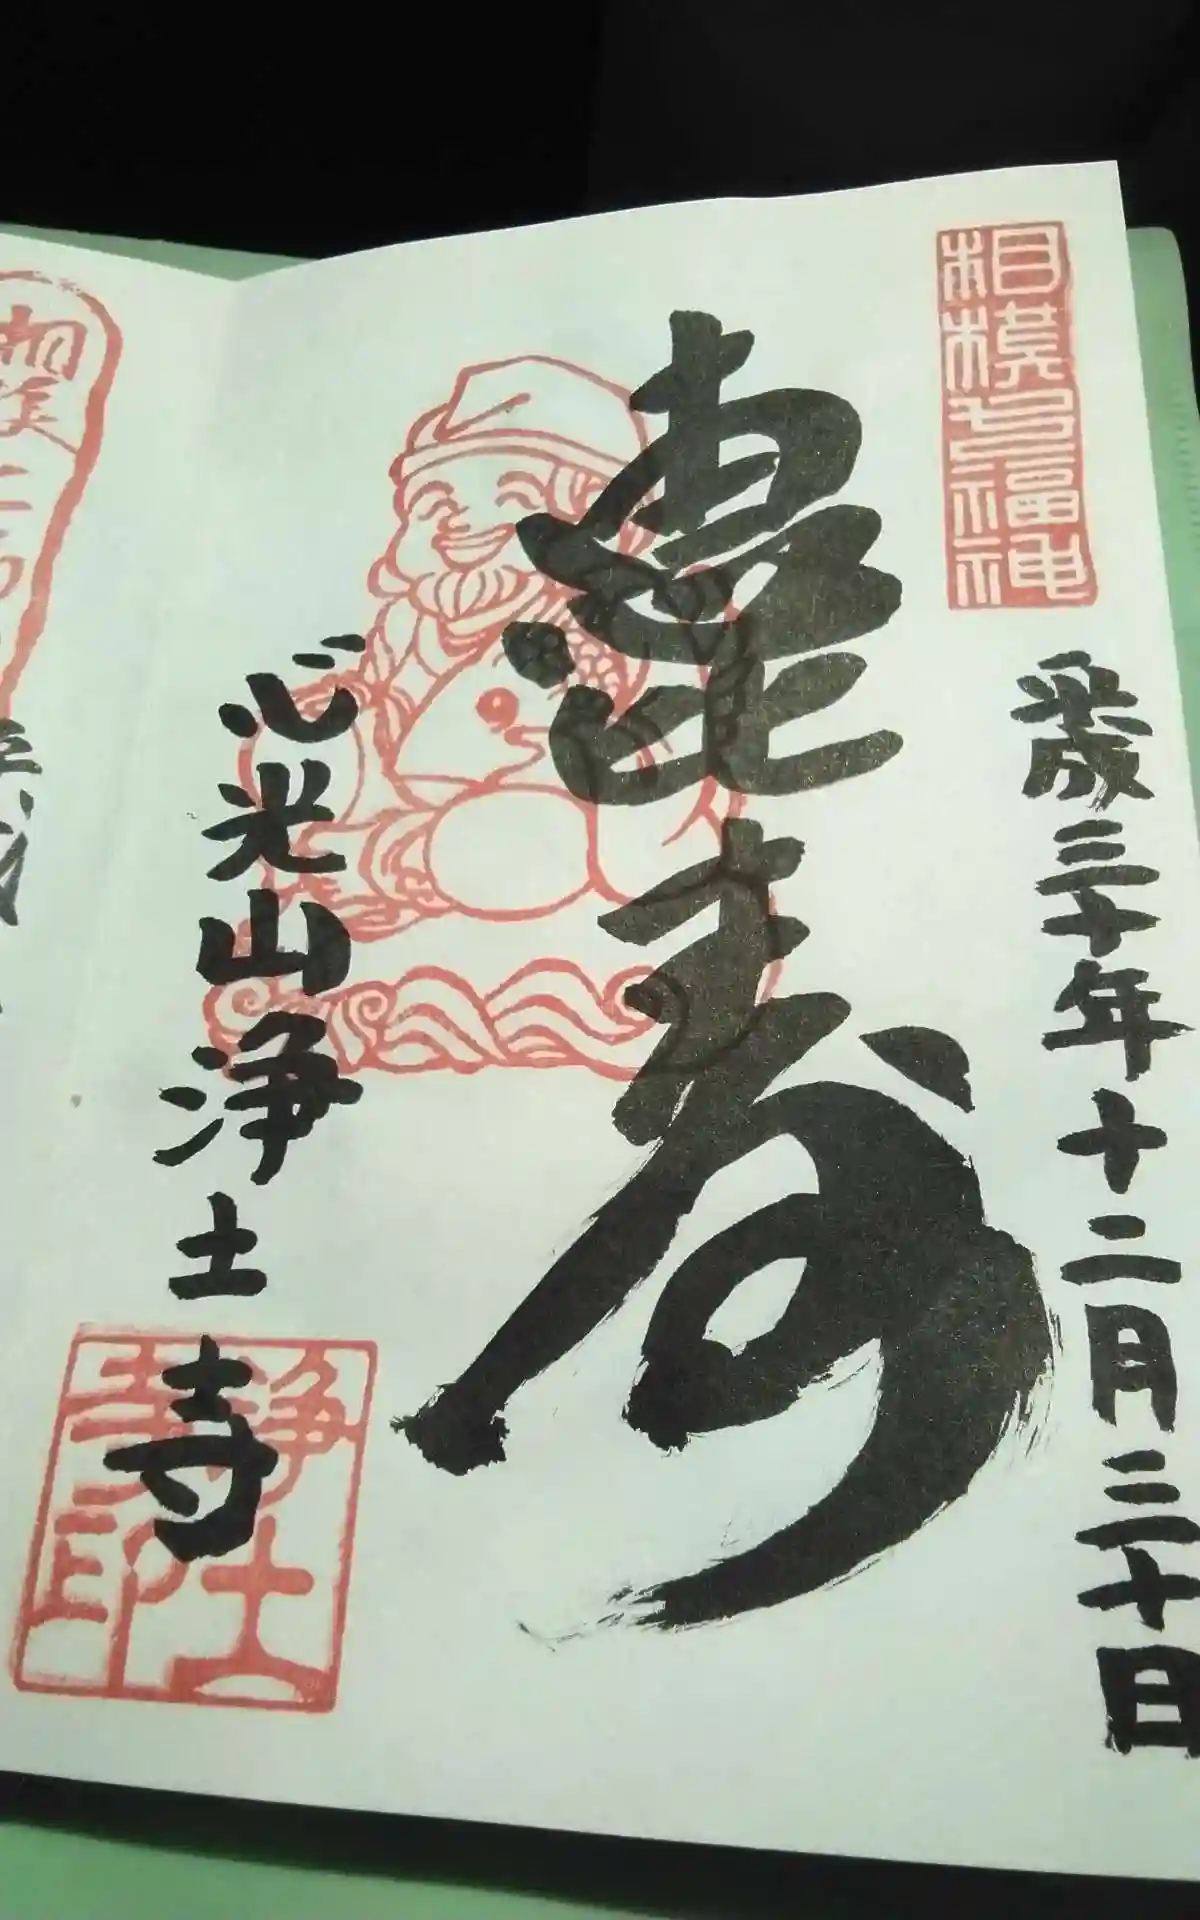 相模七福神
平成三十年十二月三十日
恵比寿
心光山浄土寺
浄土寺印
平成